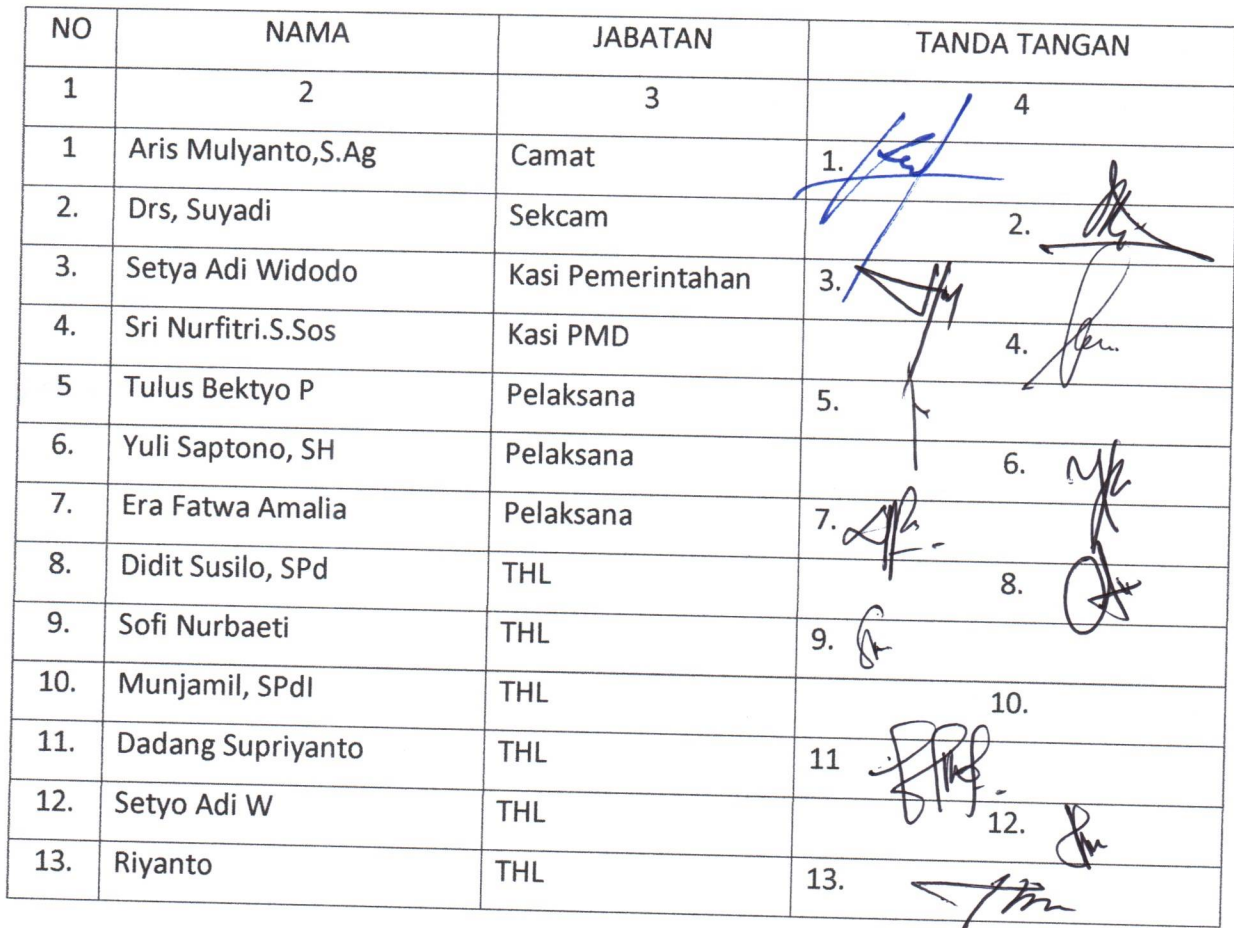 NO NAMA JABATAN TANDA TANGAN
1 2 3 4
1 Aris Mulyanto,S.Ag Camat 1.
2. Drs, Suyadi Sekcam 2.
3. Setya Adi Widodo Kasi Pemerintahan 3.
4. Sri Nurfitri.S.Sos Kasi PMD 4.
5 Tulus Bektyo P Pelaksana 5.
6. Yuli Saptono, SH Pelaksana 6.
7. Era Fatwa Amalia Pelaksana 7.
8. Didit Susilo, SPd THL 8.
9. Sofi Nurbaeti THL 9.
10. Munjamil, SPdI THL 10.
11. Dadang Supriyanto THL 11
12. Setyo Adi W THL 12.
13. Riyanto THL 13.